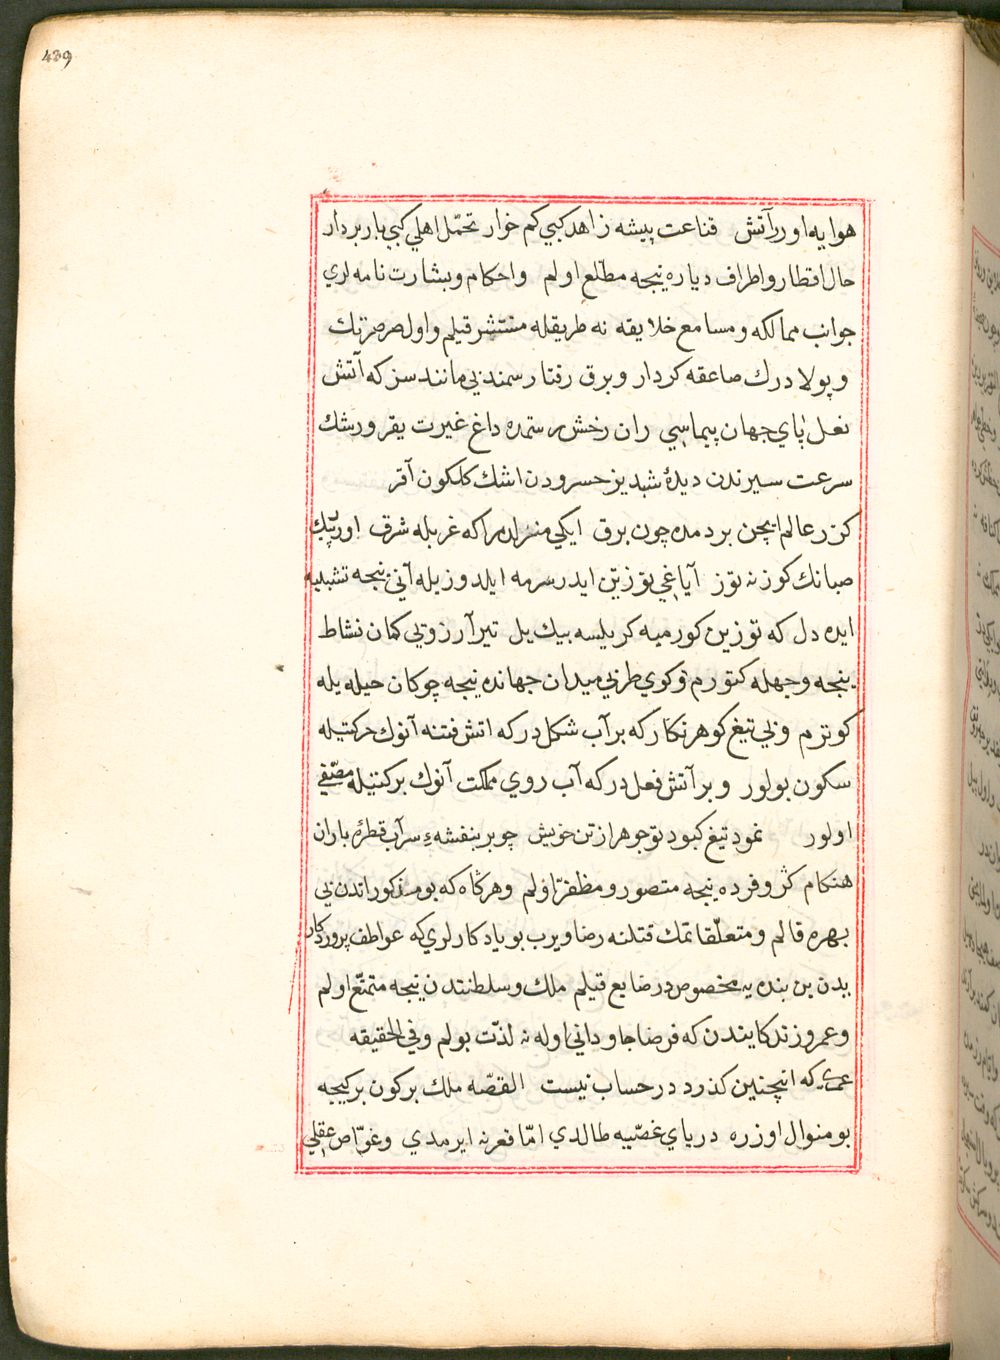 439
هوايه اورر آتش قناعت پيشه زاهد كبي كم خوار تحمّل اهلي كبي باربردار
حال اقطار و اطراف دياره نيجه مطّلع اولم و احكام و بشارت نامه لري
جوانب ممالكه و مسامع خلايقه نه طريقله منتشر قيلم و اول صرصرتك
و پولاد رك صاعقه كردار و برق رفتار سمندبي مانند سز كه آتش
نعل پاي جهان پيماسي ران رخش رستمده داغ غيرت يقر و رشك
سرعت سيرندن ديدۀ شبديز خسرودن اشك كلكون آقر
كزر عالم ايچن بر دمده چون برق ايكي منزلدر اكه غربله شرق اورر پيك
صبانك كوزنه توز آياغي توزين ايدر سرمه ايلدوزيله آني نيجه تشبيه
ايده دل كه توزين كورميه كريلسه بيك يل تير آرزوتي كمان نشاط
ينجه وجهله كتورم و كوي طربي ميدان جهانده نيجه چوكان حيله يله
كوترم و بي تيغ كوهر نكار كه بر آب شكل در كه اتش فتنه آنوك حركتيله
سكون بولور و بر آتش فعل در كه آب روي مملكت آنوك بركتيله مصّفي
اولور نمود تيغ كبود تو جوهر از تن خويش چو بر بنفشۀ سرآب قطرۀ باران
هنكام كرّ و فرده نيجه منصور و مظفرّ اولم و هركاه كه بو مذكوراندن بي
بهره قالم و متعلّقاتمك قتلنه رضا ويرب بو يادكارلري كه عواطف پروردكار
يدن بن بنده يه مخصوص در ضايع قيلم ملك و سلطنتدن نيجه متمتّع اولم
و عمر و زندكايندن كه فرضا جاوداني اوله نه لذّت بولم و في الحقيقه
عمري كه اينچنين كذرد در حساب نيست القصّه ملك بر كون بر كيجه
بو منوال اوزره درياي غصّيه طالدي امّا قعرنه ايرمدي و غوّاص عقلي